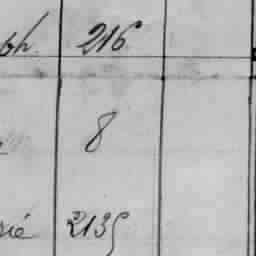 ph. 216
8
rié 2135